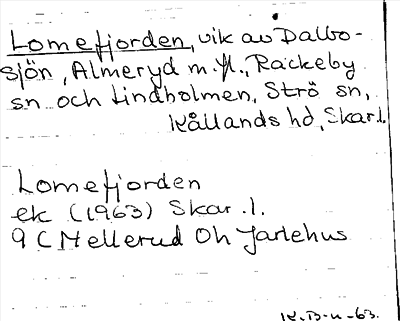 Lomefjorden, vik av Dalbo-
sjön, Almeryd m.fl., Rackeby
sn och Lindholmen, Strö sn,
Kållands hd, Skar.l.
Lomefjorden
ek (1963) Skar.l.
9 C Mellerud Oh Jarlehus
K.D-n-63.